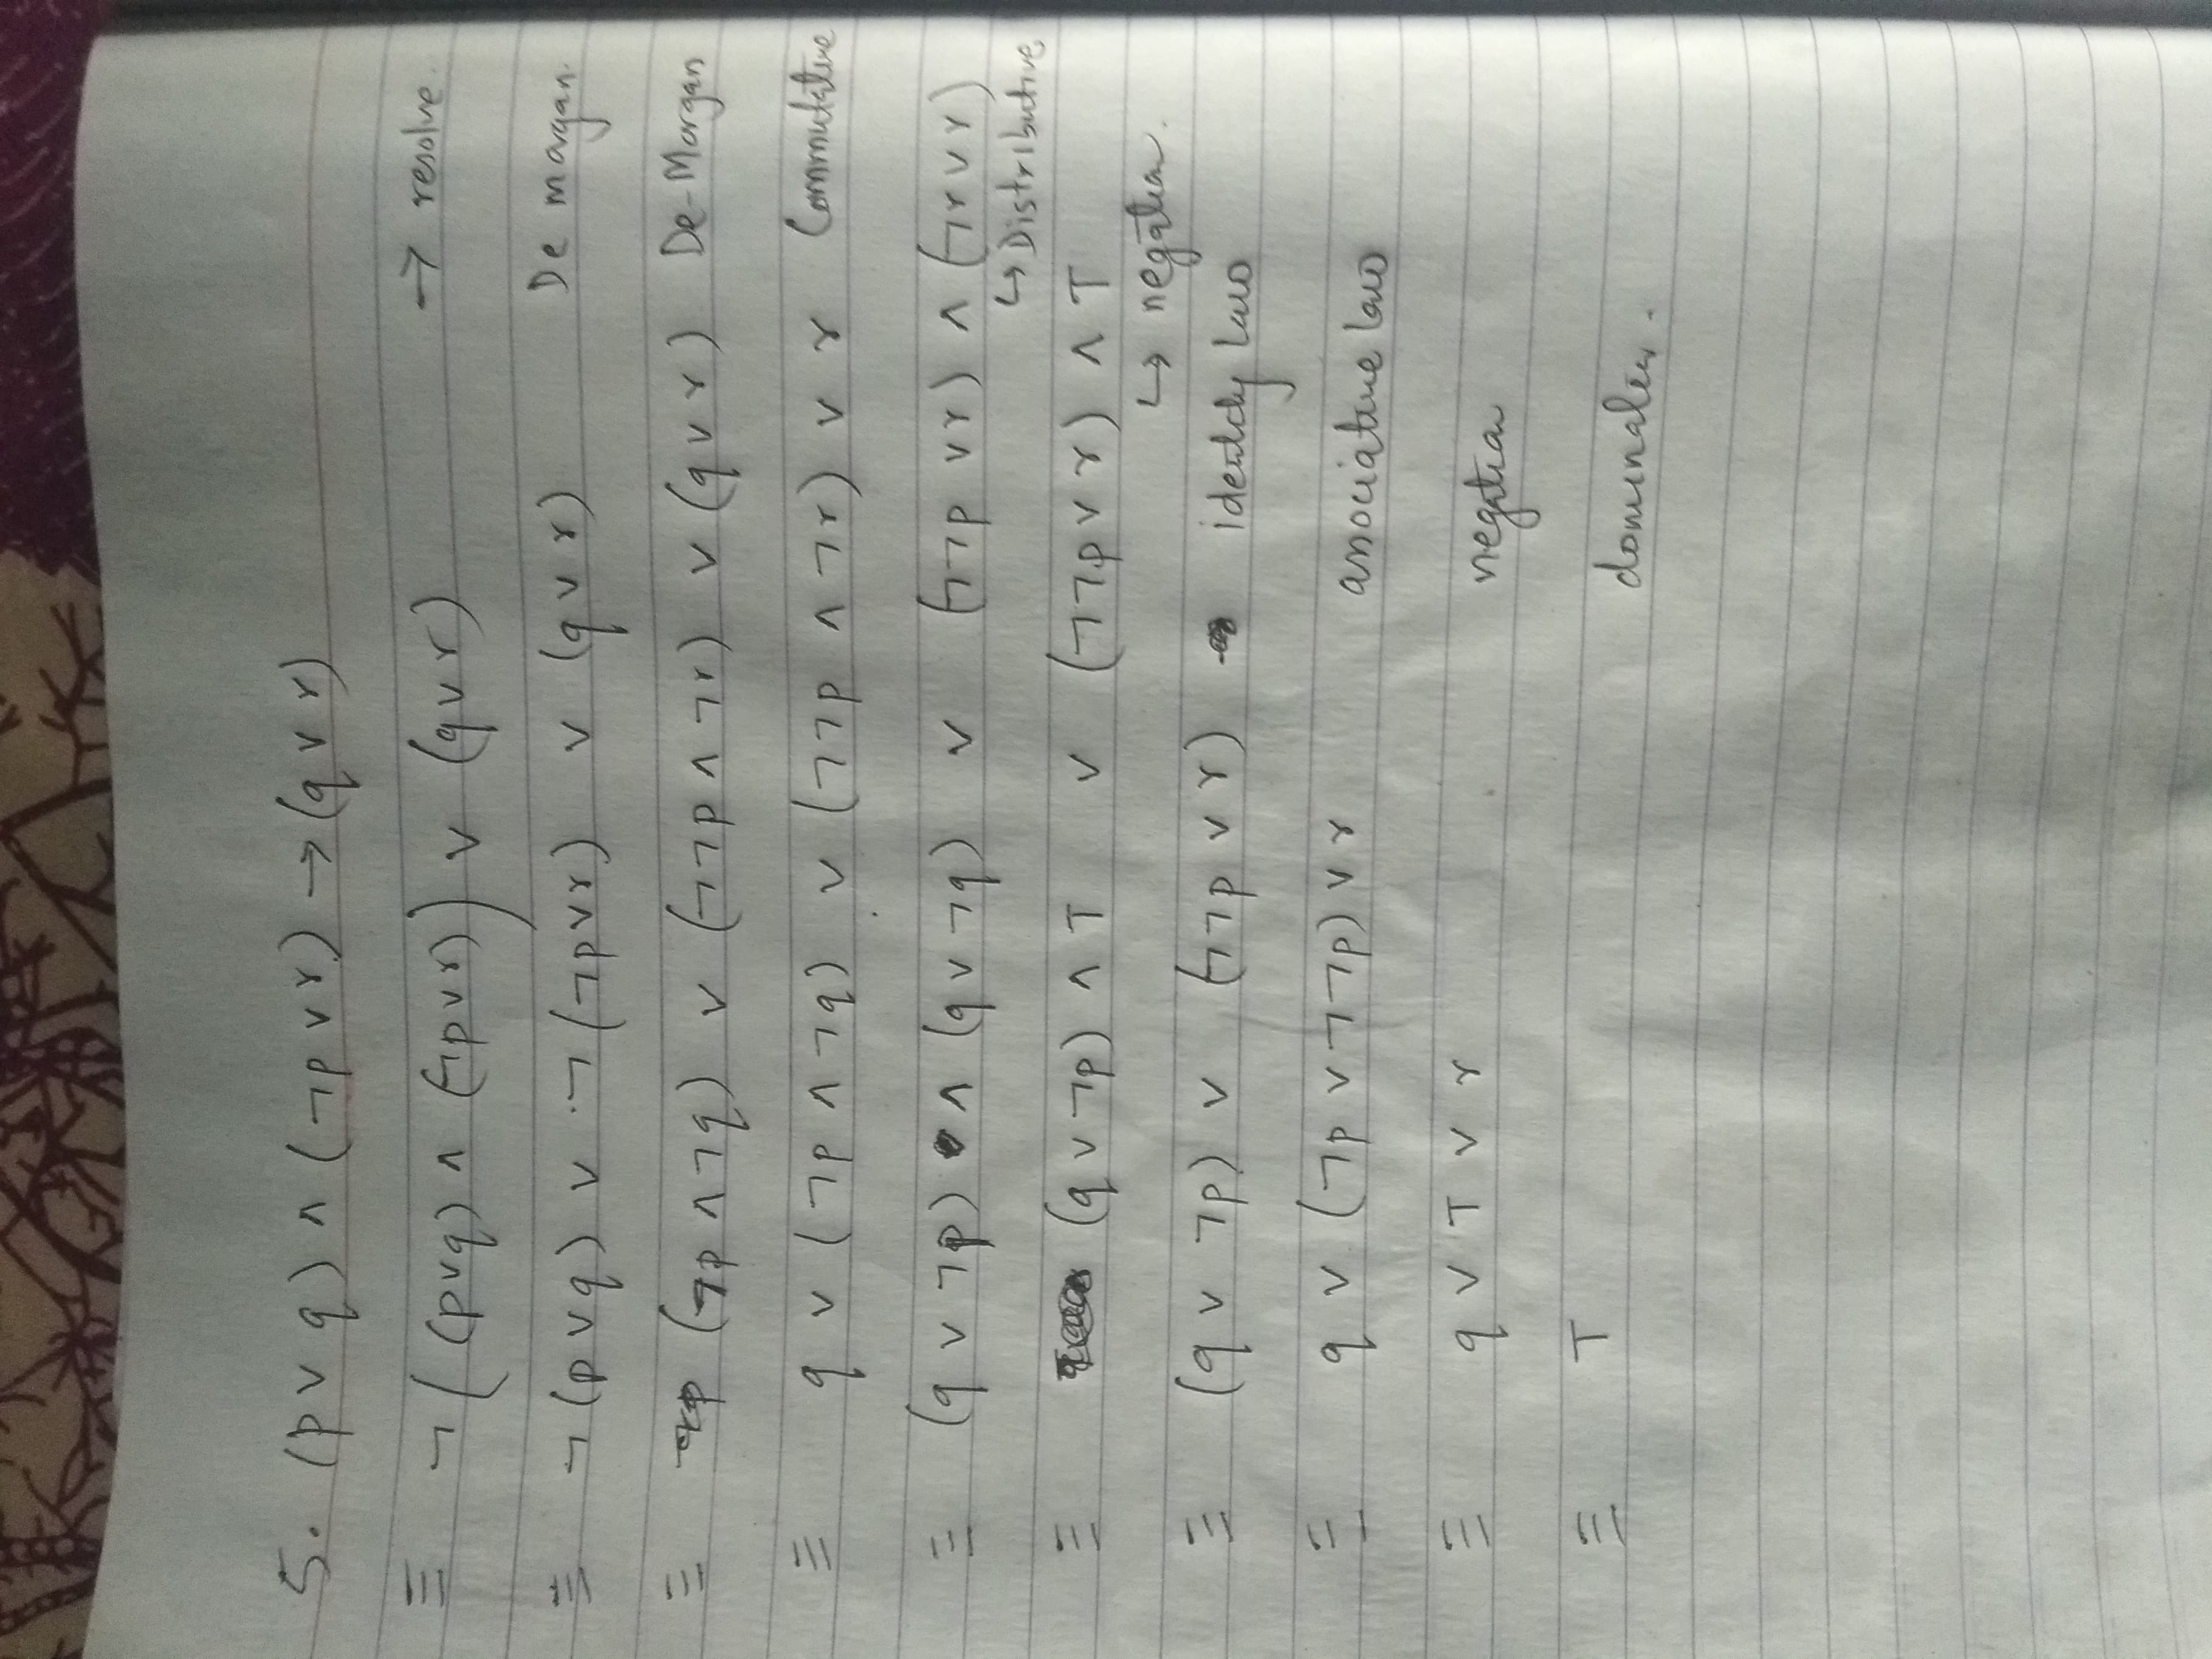 5. (p ∨ q) ∧ (¬p ∨ r) → (q ∨ r)
≡ ¬((p∨q) ∧ (¬p∨r)) ∨ (q∨r) → resolve.
≡ ¬(p∨q) ∨ ¬(¬p∨r) ∨ (q∨r) De morgan.
≡ (¬p ∧ ¬q) ∨ (¬¬p ∧ ¬r) ∨ (q∨r) De-Morgan
≡ q ∨ (¬p ∧ ¬q) ∨ (¬¬p ∧ ¬r) ∨ r Commutative
≡ (q ∨ ¬p) ∧ (q ∨ ¬q) ∨ (¬¬p ∨r) ∧ (¬r∨r)
↳ Distributive
≡ (q ∨ ¬p) ∧ T ∨ (¬¬p∨r) ∧ T
↳ negation.
≡ (q ∨ ¬p) ∨ (¬¬p ∨ r) identity law
≡ q ∨ (¬p ∨ ¬¬p) ∨ r associative law
≡ q ∨ T ∨ r negation
≡ T